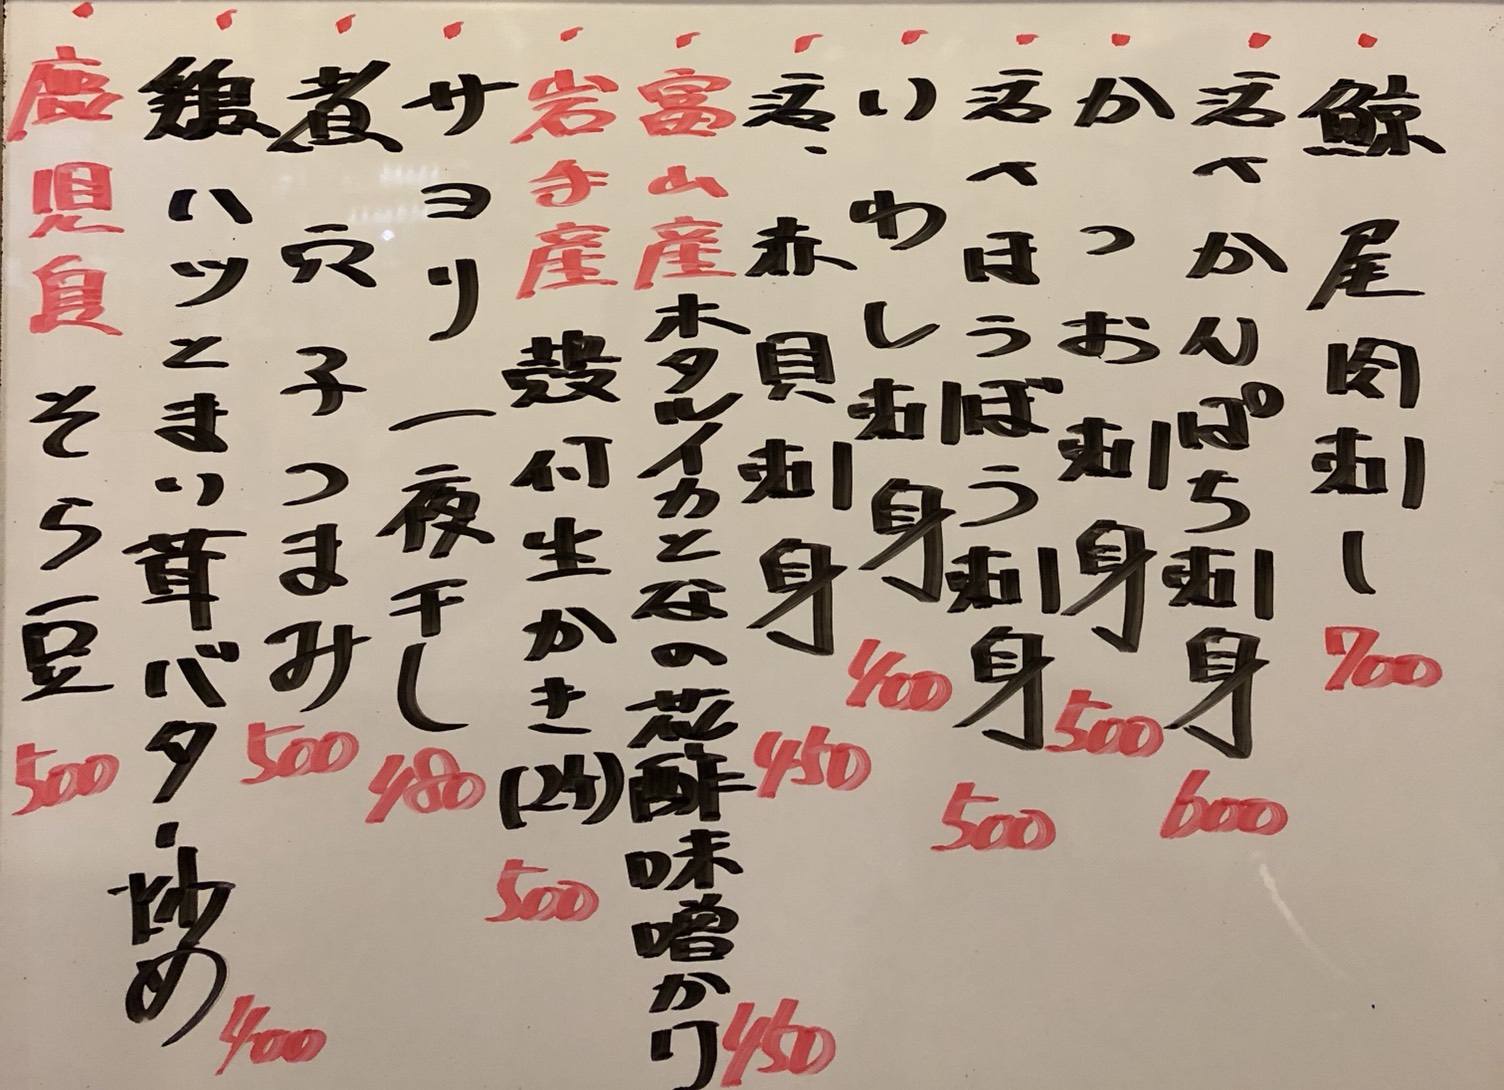 鯨尾肉刺し 700
活〆かんぱち刺身 600
かつお刺身 500
活〆ほうぼう刺身 500
いわし刺身 400
活、赤貝刺身 450
富山産ホタルイカとなの花酢味噌かけ 450
岩手産殻付生かき(2ヶ) 500
サヨリ一夜干し 480
煮穴子つまみ 500
鶏ハツとまい茸バター炒め 400
鹿児島そら豆 500